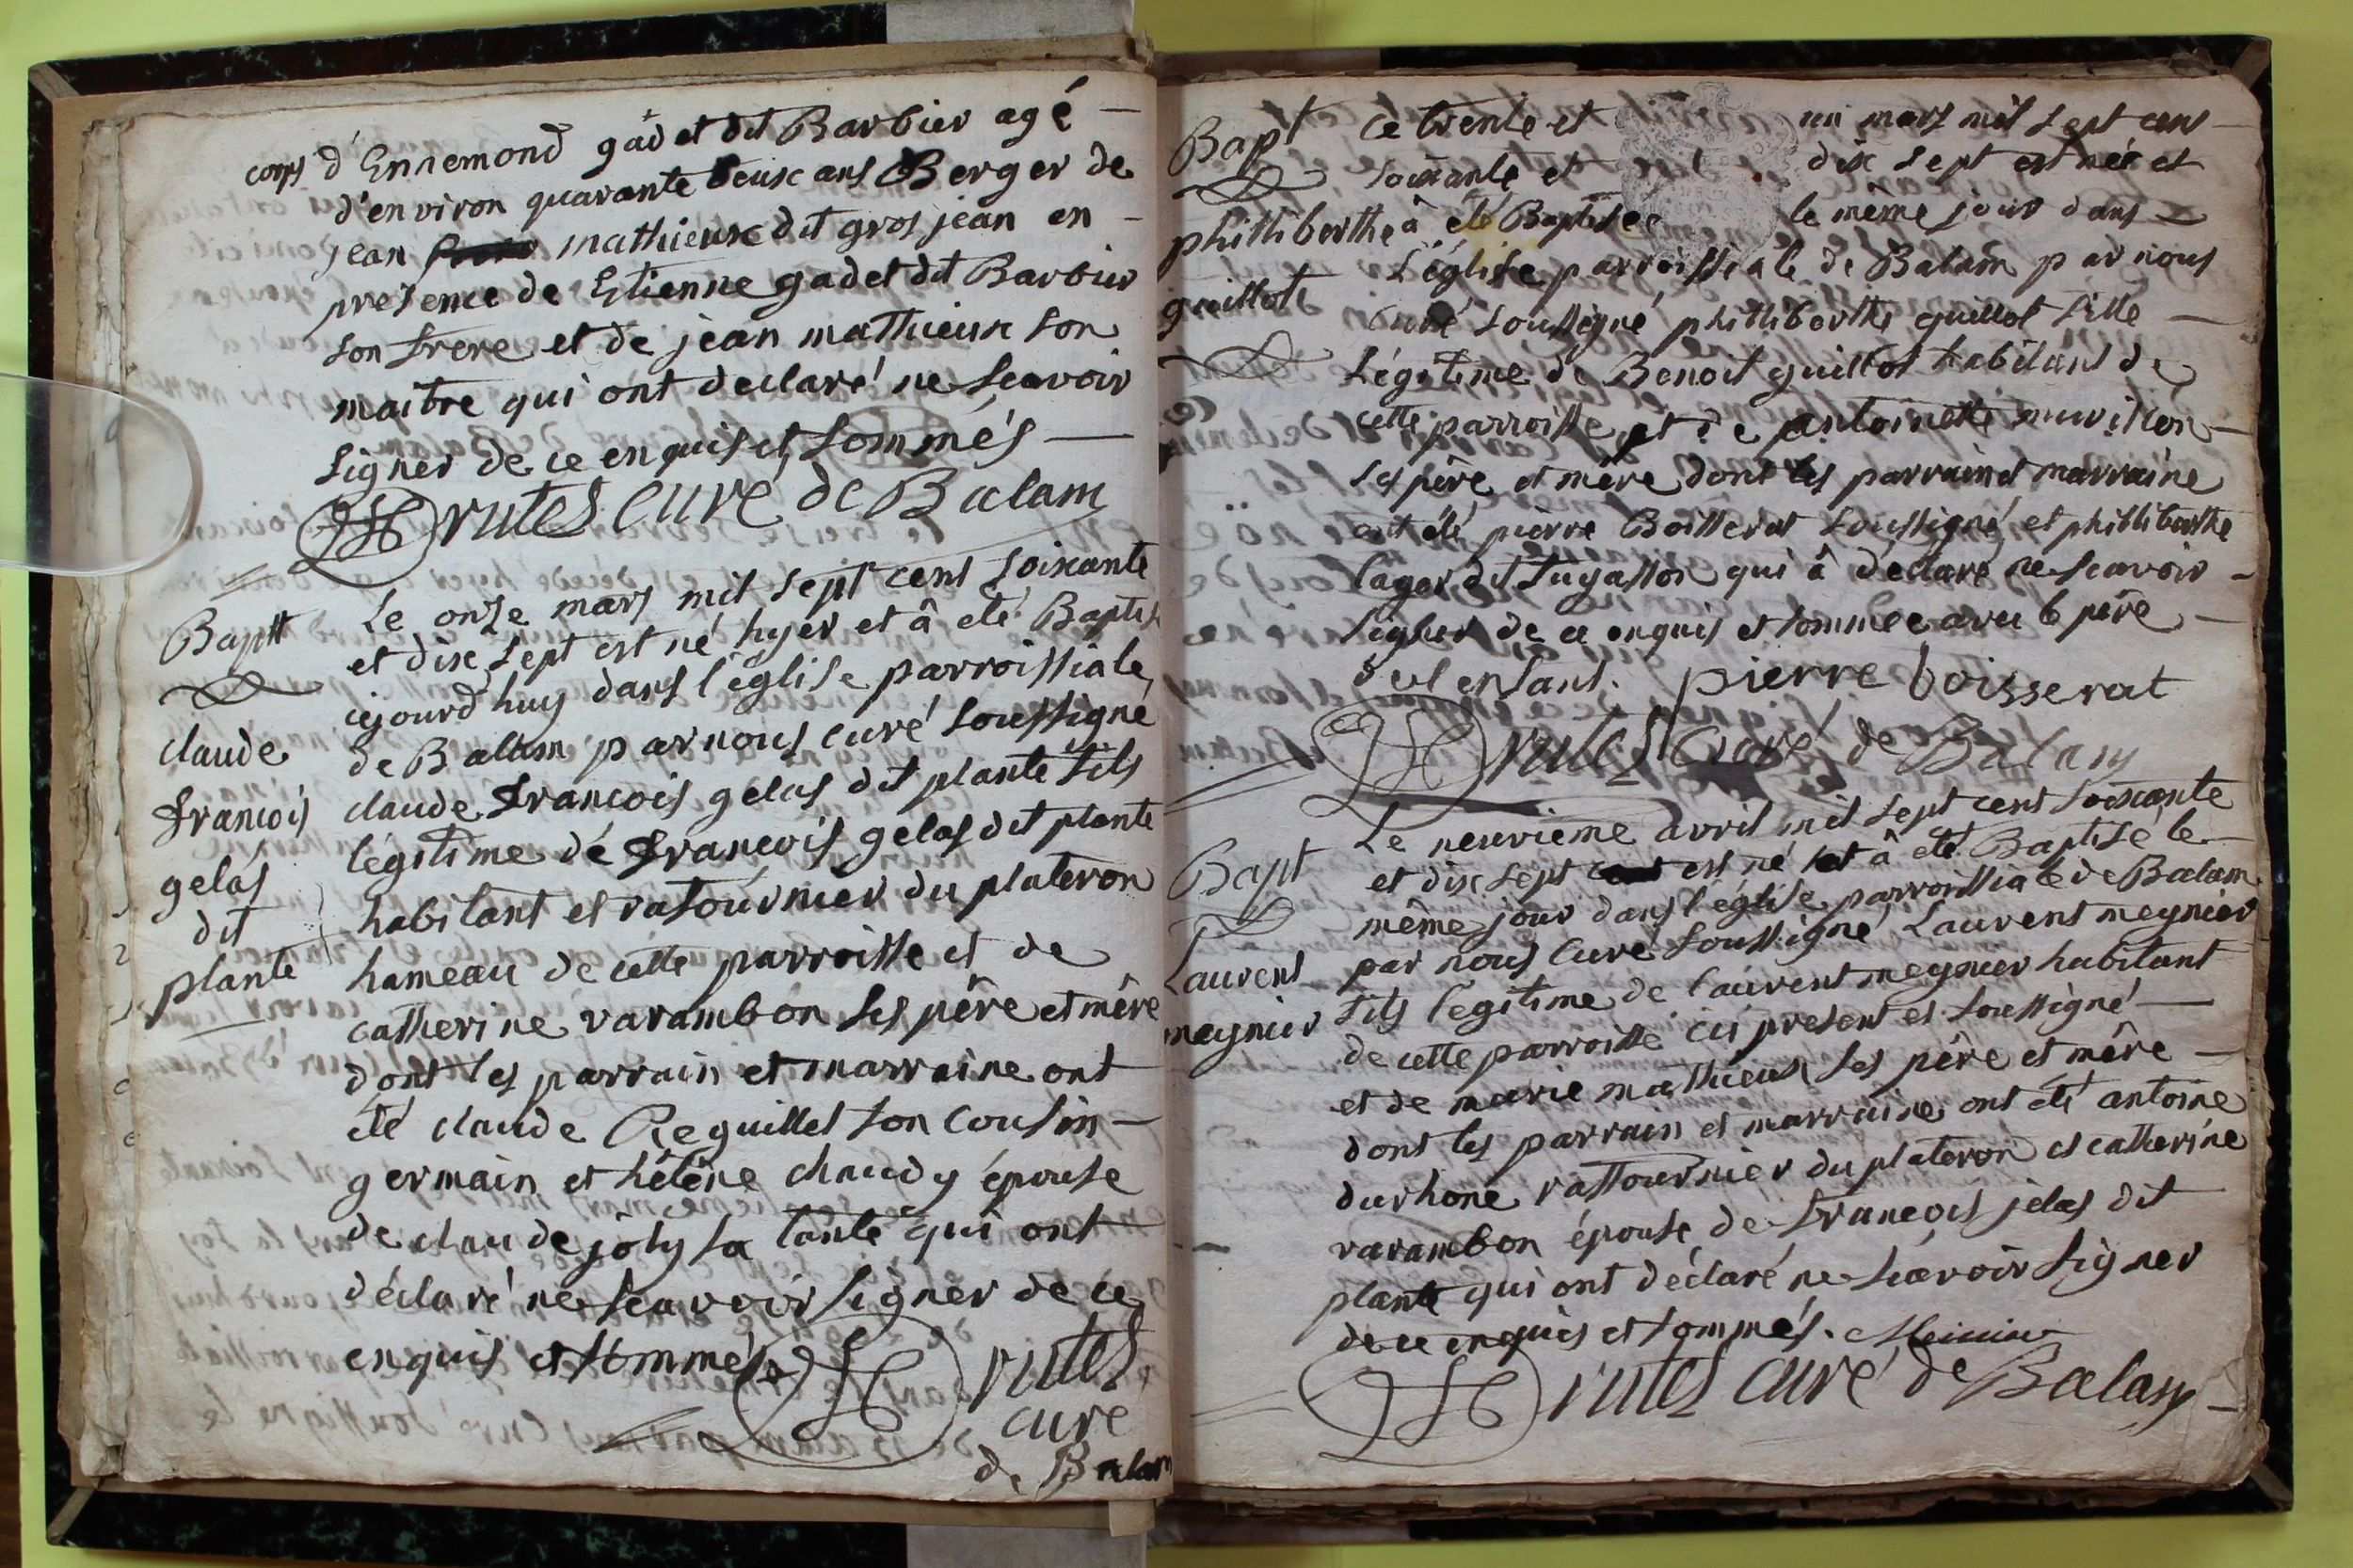 corps d'Ennemond gâdet dit Barbier agé —
d'environ quarante deux ans Berger de
jean mathieux dit gros jean en —
presence de Etienne gadet dit Barbier
son frere et de jean mathieux son
maitre qui ont declaré ne scavoir
signer de ce enquis et sommés —
Drutel curé de Balam
Baptt
claude
francois
gelas
dit
plante
Le onze mars mil sept cent soixante
et dix sept est né hyer et â eté Baptisé
cejourd'huy dans l'église parroissiale
de Balam par nous curé soussigné
claude francois gelas dit plante fils
légitime dé francois gelas dit plante
habitant et rafournier du plateron
hameau de cette parroisse et de
catherine varambon ses pêre et mêre
dont les parrain et marraine ont
été claude Reguillet son cousin —
germain et hélêne chaudy épouse
de claude joly sa tante qui ont
déclaré ne scavoir signer de ce
enquis et sommés
Drutel
curé
de Balam
Bapt
philliberthe
guillot
Ce trente et un mars mil sept cens —
soixante et dix sept est née et
â eté Baptisée le même jour dans —
L'église parroissiale de Balam par nous
curé soussigné philliberthe guillot fille —
Légitime de Benoit guillot habitant de
cette parroisse et de antoinette —
ses pêre et mêre dont les parrain et marraine
ont été pierre Boisserat soussigné et phillibarthe
lager dit qui â déclaré ne scavoir —
signer de ce enquis et sommée avec le pêre —
del enfant. pierre boisserat
Drutel Curé de Balam
Bapt
Laurent
meynier
Le neuvieme avril mil sept cent soixante
et dix sept est né et â eté Baptisé le —
même jour dans l'église parroissiale de Balam
par nous curé soussigné Laurent meynier
fils legitime de laurent meynier habitant
de cette parroisse ici present et soussigné —
et de marie mathieux ses pére et mêre —
dont les parrain et marraine ont été antoine
durhone raffournier du plateron et catherine
varambon épouse de francois jelas dit
plante qui ont déclaré ne scavoir signer
de ce enquis et sommés. Meinier
Drutel curé de Balam —